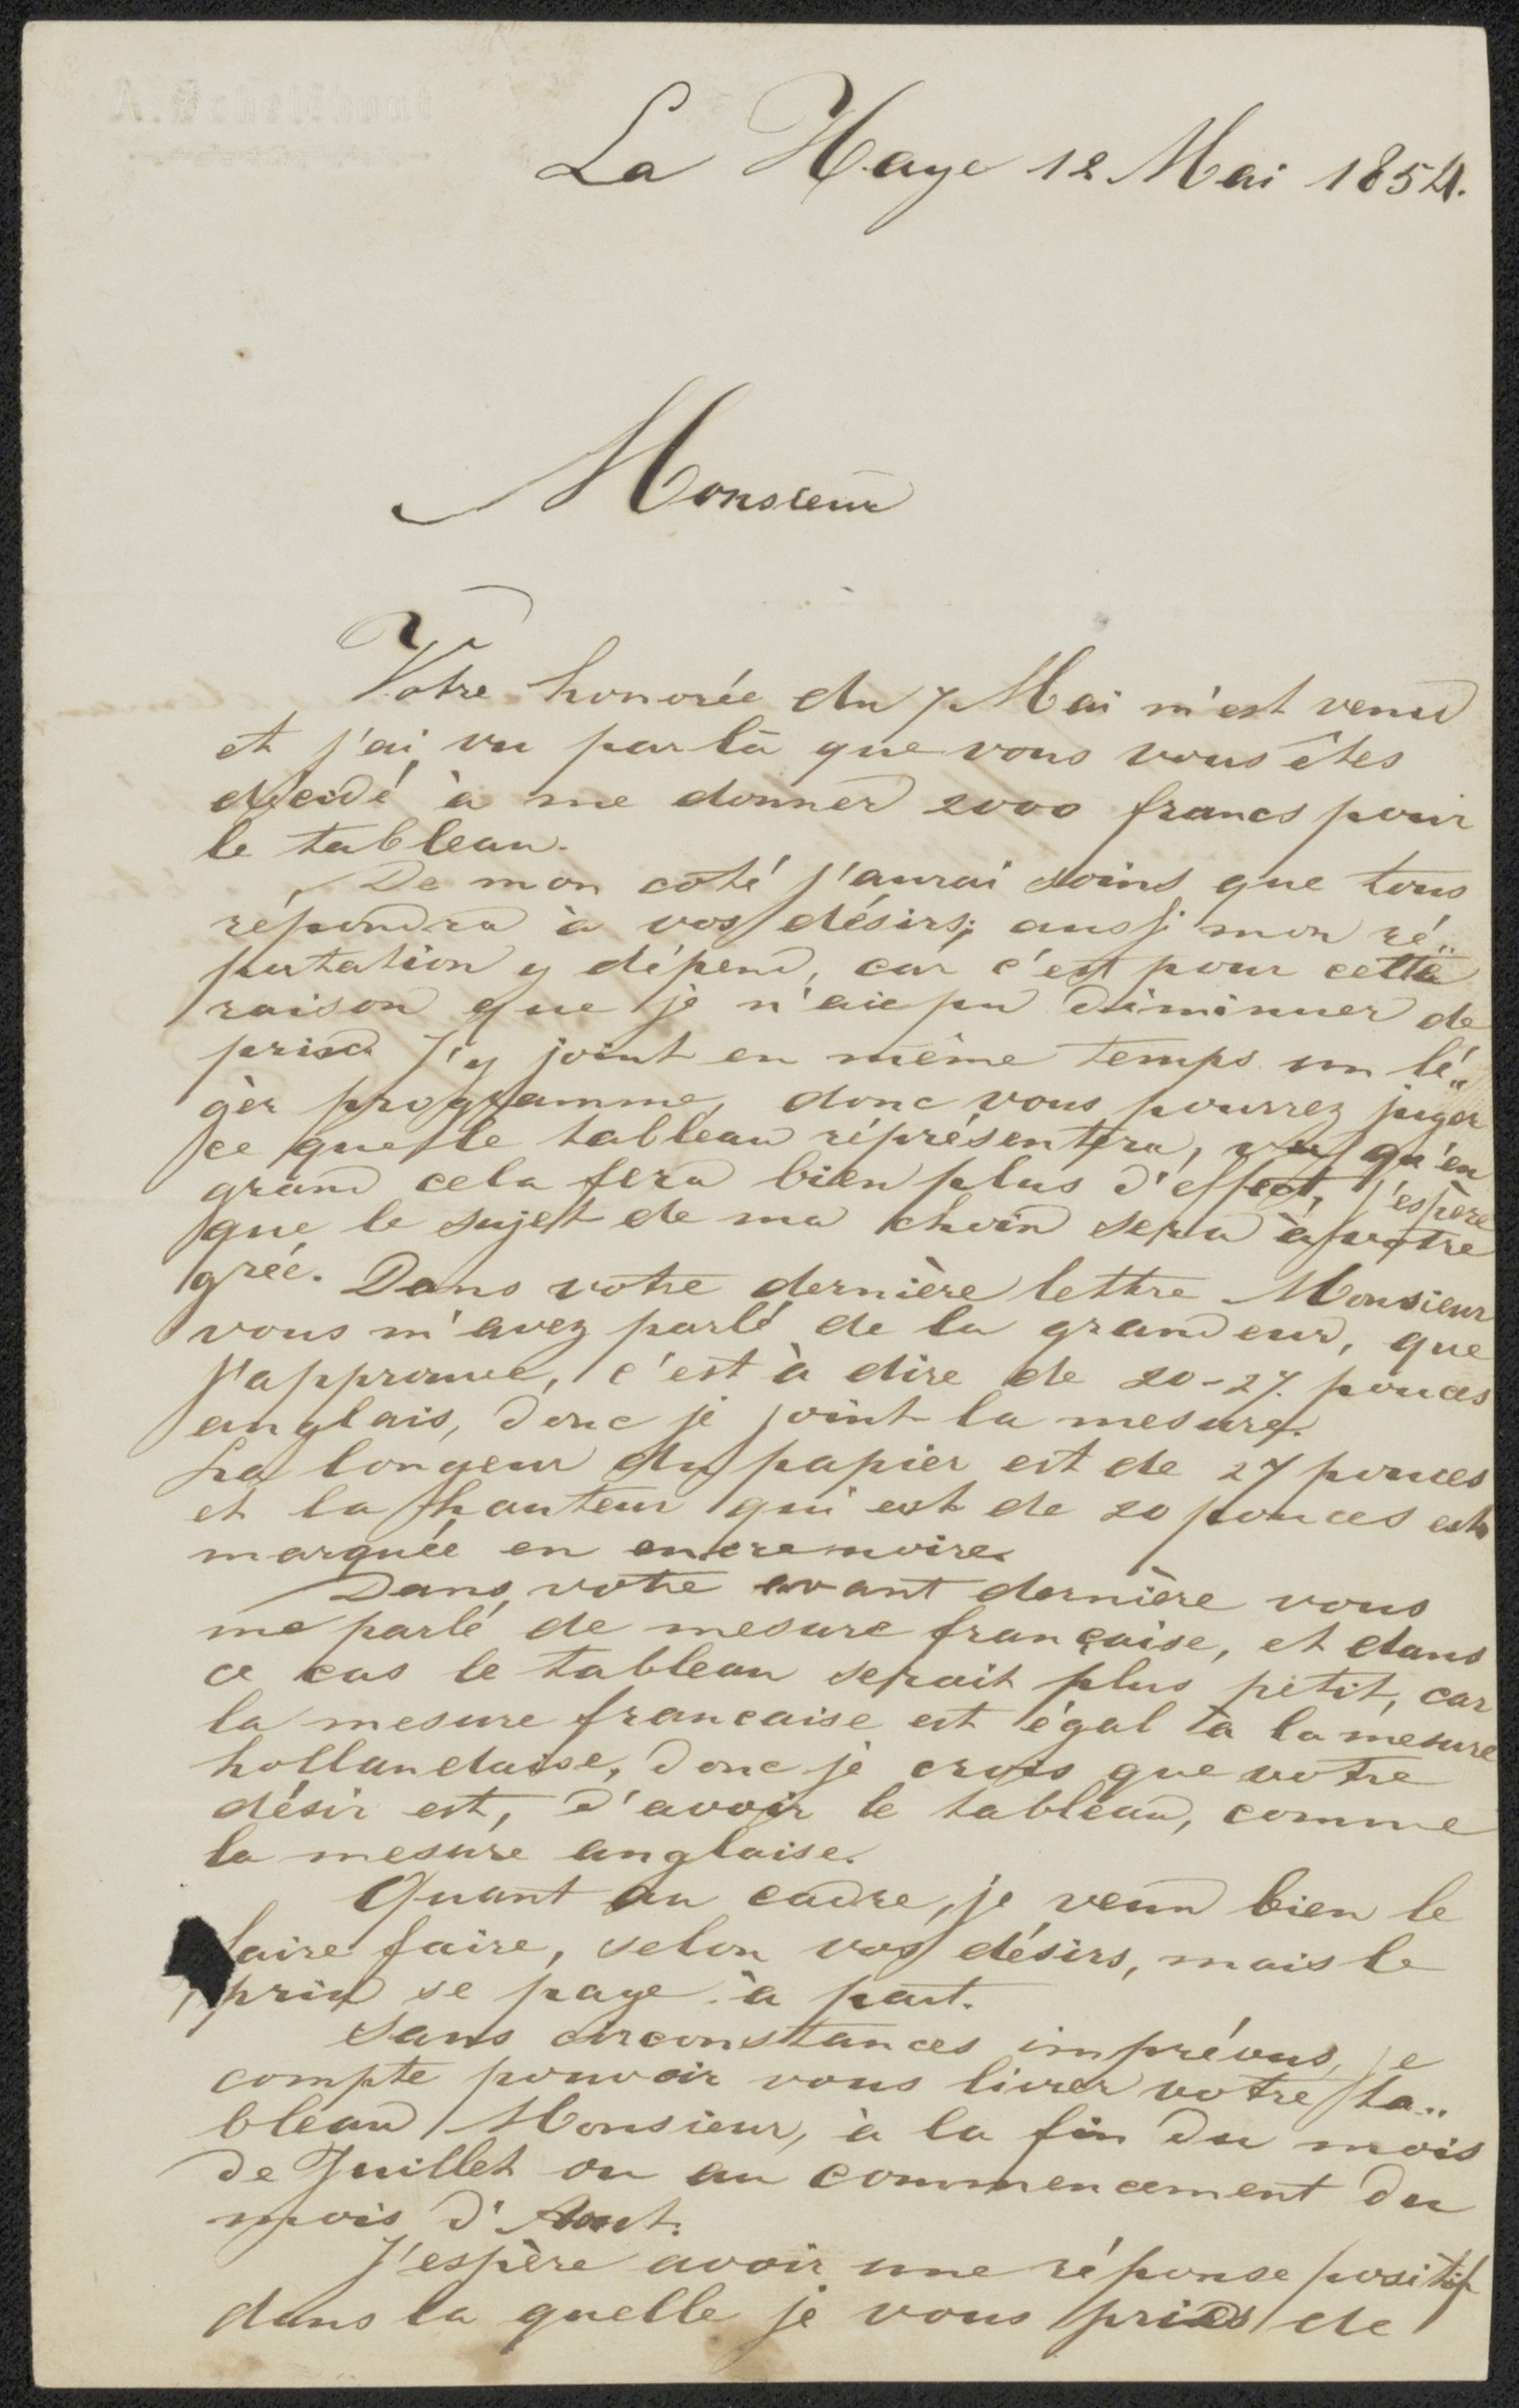 La Haye 12 Mai 1854.
Monsieur
Votre honorée du 7 Mai m'est venu
et j'ai vu par là que vous vous êtes
décidé à me donner 2000 francs pour
le tableau.
De mon coté j'aurai soins que tous
répondra à vos désirs; aussi mon ré„
putation y dépend, car c'est pour cette
raison que je n'aie pu diminuer de
prix. J'y joint en même temps un lé„
gèr programme, donc vous pourrez juger
ce que le tableau réprésentera, vu qu'en
grand cela fera bien plus d'effect, j'espère
que le sujet de ma choix sera à votre
grée. Dans votre dernière lettre Monsieur
vous m'avez parlé de la grandeur, que
j'approuve, c'est à dire de 20-27. pouces
anglais, donc je joint la mesure.
La longeur du papier est de 27 pouces
et la hauteur qui est de 20 pouces est
marquée en encre noire.
Dans votre avant dernière vous
me parlé de mesure française, et dans
ce cas le tableau seroit plus petit, car
la mesure francaise est égal à la mesure
hollandaise, donc je crois que votre
désir est, d'avoir le tableau, comme
la mesure anglaise.
Quant au cadre, je veux bien le
faire faire, selon vos désirs, mais le
prix se paye à part.
Sans circonstances imprévus, je
compte pouvoir vous livrer votre ta„
bleau Monsieur, à la fin du mois
de Juillet ou au commencement du
mois d'Aout.
J'espère avoir une réponse positif
dans la quelle je vous pries de